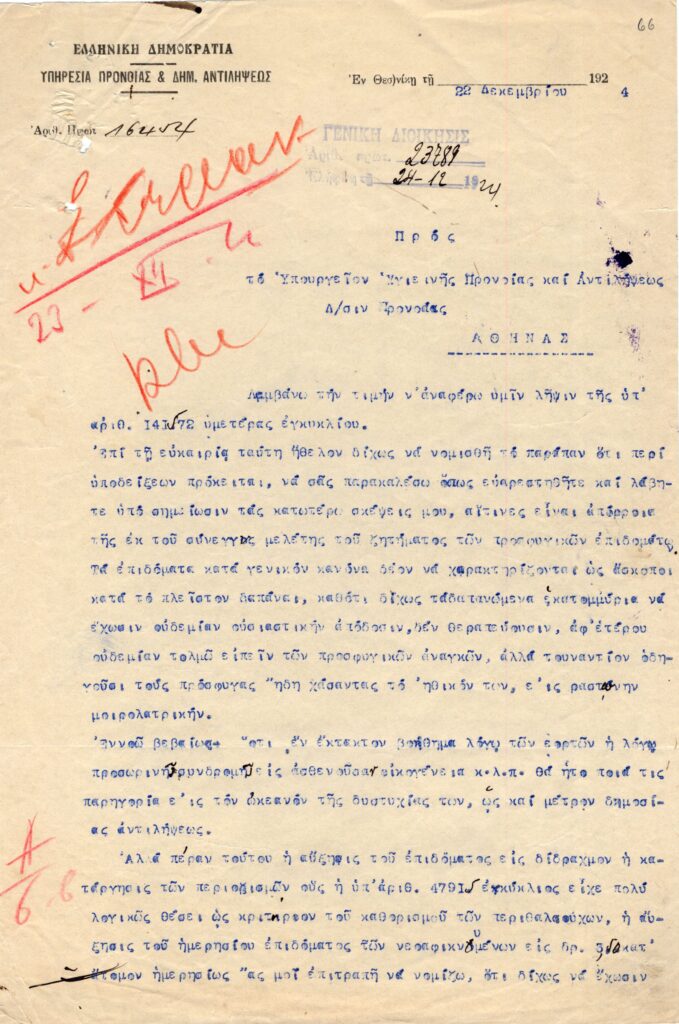 66
ΕΛΛΗΝΙΚΗ ΔΗΜΟΚΡΑΤΙΑ
ΥΠΗΡΕΣΙΑ ΠΡΟΝΟΙΑΣ & ΔΗΜ. ΑΝΤΙΛΗΨΕΩΣ
Ἐν Θεσ)νίκῃ τῇ 22 Δεκεμβρίου 1924
Ἀριθ. Πρωτ. 16454
ΓΕΝΙΚΗ ΔΙΟΙΚΗΣΙΣ
Ἀριθ. πρωτ. 23789
24-12 1924
23 - XII
Πρός
τό Ὑπουργεῖον Ὑγιεινῆς Προνοίας καί Ἀντιλήψεως
Δ/σιν Προνοίας
ΑΘΗΝΑΣ
Λαμβάνω τήν τιμήν ν'ἀναφέρω ὑμῖν λῆψιν τῆς ὑπ'
ἀριθ. ὑμετέρας ἐγκυκλίου.
Ἐπί τῇ εὐκαιρίᾳ ταύτῃ ἤθελον δίχως νά νομισθῇ τό παράπαν ὅτι περί
ὑποδείξεων πρόκειται, νά σᾶς παρακαλέσω ὅπως εὐαρεστηθῆτε καί λάβη-
τε ὑπό σημείωσιν τάς κατωτέρω σκέψεις μου, αἵτινες εἶναι ἀπόρροια
τῆς ἐκ τοῦ σύνεγγυς μελέτης τοῦ ζητήματος τῶν προσφυγικῶν ἐπιδομάτω
Τά ἐπιδόματα κατά γενικόν κανόνα δέον νά χαρακτηρίζονται ὡς ἄσκοποι
κατά τό πλεῖστον δαπάναι, καθότι δίχως τάδαπανώμενα ἑκατομμύρια νά
ἔχωσιν οὐδεμίαν οὐσιαστικήν ἀπόδοσιν,δέν θεραπεύουσιν, ἀφ'ἑτέρου
οὐδεμίαν τολμῶ εἰπεῖν τῶν προσφυγικῶν ἀναγκῶν, ἀλλά τουναντίον ὁδη-
γοῦσι τούς πρόσφυγας "ηδη χάσαντας τό ἠθικόν των, ε'ις ραστώνην
μοιρολατρικήν.
Ἐννοῶ βεβαίως "οτι ἕν ἔκτακτον βοήθημα λόγῳ τῶν ἑορτῶν ἤ λόγῳ
προσωρινῆς συνδρομῆς εἰς ἀσθενοῦσαν οἰκογένεια κ.λ.π. θά ἦτο ποιά τις
παρηγορία ε'ις τόν ὠκεανόν τῆς δυστυχίας των, ὥς καί μέτρον δημοσί-
ας ἀντιλήψεως.
Ἀλλά πέραν τούτου ἡ αὔξησις τοῦ ἐπιδόματος εἰς δίδραχμον ἡ κα-
τάργησις τῶν περιορισμῶν οὕς ἡ ὑπ'ἀριθ. ἐγκύκλιος εἶχε πολύ
λογικῶς θέσει ὡς κριτήριον τοῦ καθορισμοῦ τῶν περιθαλπούχων, ἡ αὔ-
ξησις τοῦ ἡμερησίου ἐπιδόματος τῶν νεοαφικνουμένων εἰς δρ. κατ'
ἄτομον ἡμερησίως "ας μοί ἐπιτραπῆ νά νομίζω, ὅτι δίχως νά ἔχωσιν